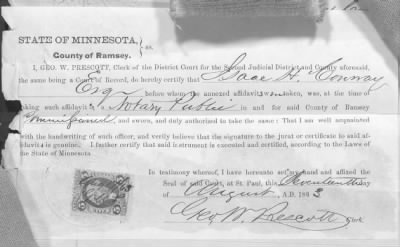 STATE OF MINNESOTA, } ss.
County of Ramsey.
I, GEO. W. PRESCOTT, Clerk of the District Court for the Second Judicial District and County aforesaid,
the same being a Court of Record, do hereby certify that Isaac H. Conway
Esq before whom the annexed affidavit was taken, was, at the time of
taking such affidavit, a Notary Public in and for said County of Ramsey
Commissioned and sworn, and duly authorised to take the same: That I am well acquainted
with the handwriting of such officer, and verily believe that the signature to the jurat or certificate to said af-
fidavit is genuine. I further certify that said instrument is executed and certified, according to the Laws
of the State of Minnesota
In testimony whereof, I have hereunto set my hand and affixed the
Seal of said Court, at St. Paul, this Seventeenth
day of August, A.D. 1863
Geo W. Prescott Clerk